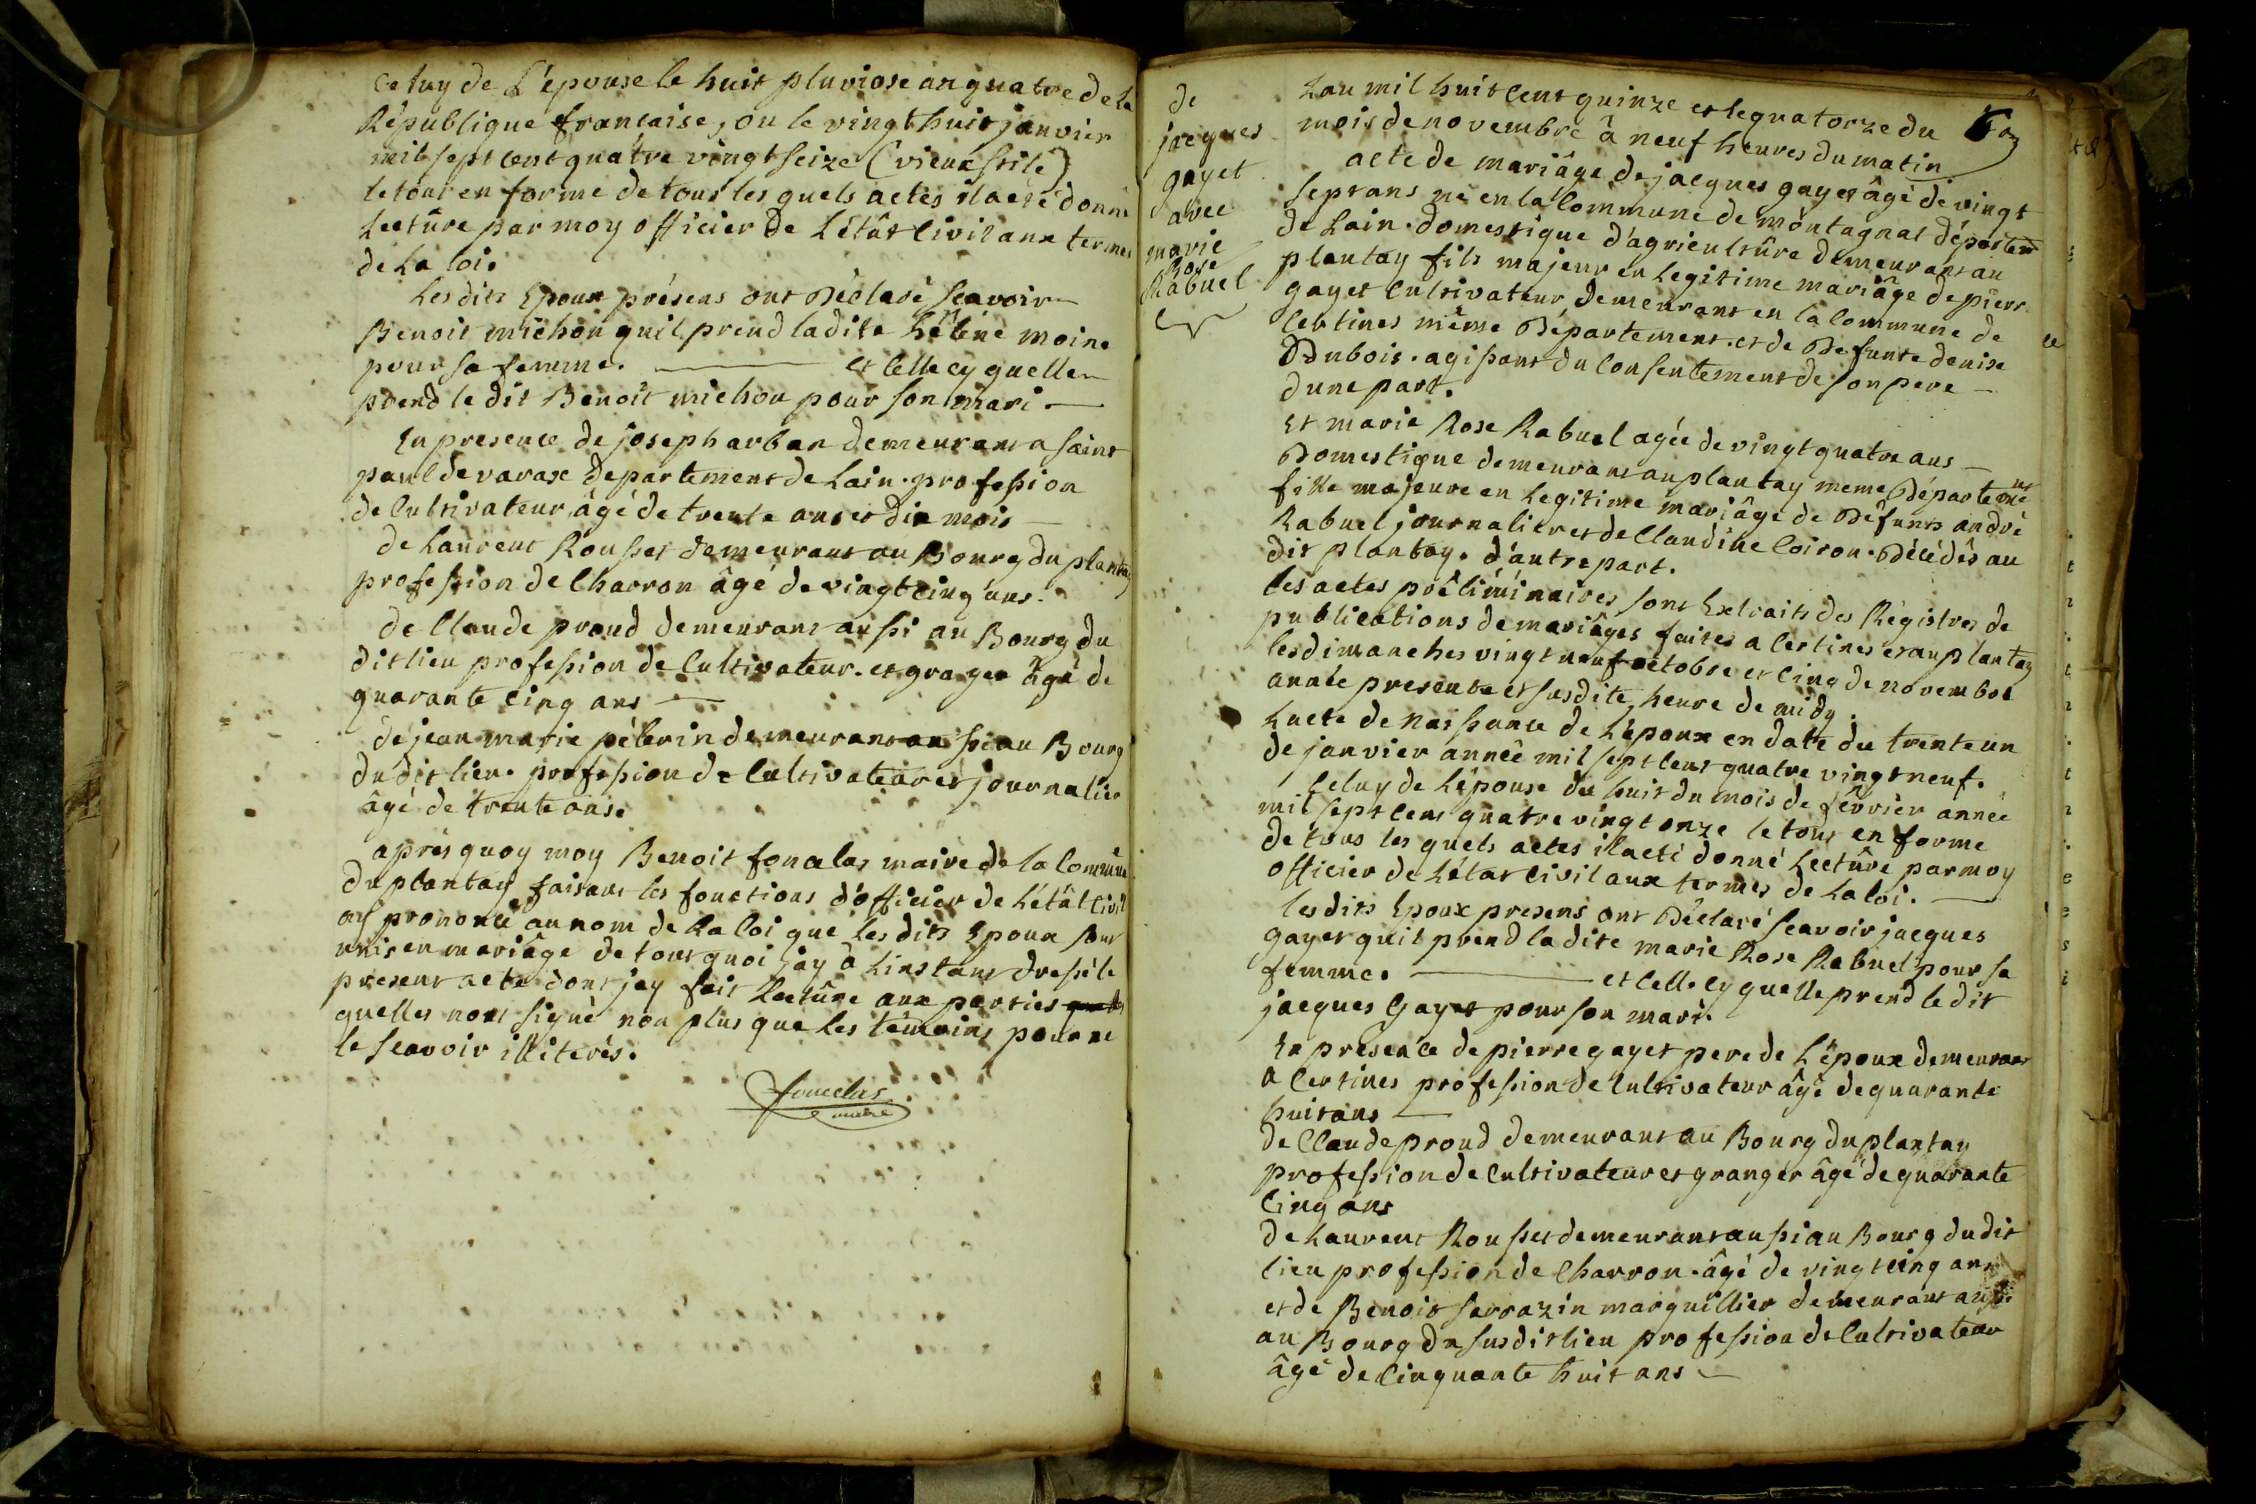 Celuy de L'epouse le huit pluviose an quatre de la
République francaise, ou le vingt huit janvier
mil sept cent quâtre vingt seize (vieux stile)
le tout en forme de tous les quels actes il a été donné
Lectûre par moy officier de L'étât Civil aux termes
de La loi.
Les dits Epoux présens ont Déclaré Scavoir
Benoit michon quil prend la dite Héléne moine
pour sa femme. et celle cy quelle
prend le dit Benoit michon pour son mari.
En presence de joseph arban demeurant a saint
paul de varax departement de Lain. profession
de Cultivateur âgé de trente ans et dix mois
de Laurent Rousset demeurant au Bourg du plantay
profession de Charron âgé de vingt cinq ans.
de Claude proud demeurant aussi au Bourg du
dit lieu profession de Cultivateur. et granger âgé de
quarante cinq ans
de jean marie pélerin demeurant aussi au Bourg
du dit lieu. profession de Cultivateur et journalier
âgé de trente ans.
aprés quoy moy Benoit fonclas maire de la Commune
du plantay faisant les fonctions d'officier de L'étât Civil
ay prononcé au nom de La loi que les dits Epoux sont
unis en mariâge de tout quoi jay à Linstant dressé le
present acte dont jay fait Lectûre aux parties
quelles nont signé non plus que les témoins pour ne
le scavoir illiterés.
fonclas
maire
de
jacques
gayet
avec
marie
Rose
Rabuel
Lan mil huit cent quinze et le quatorze du
mois de novembre â neuf heures du matin
acte de mariâge de jacques gayet âgé de vingt
sept ans né en la Commune de montagnat départem
de Lain. domestique d'agricultûre demeurant au
plantay fils majeur en legitime mariâge de pierr
gayet Cultivateur demeurant en la Commune de
Certines même Département. et de Defunte denise
Dubois. agissant du Consentement de son pere
dune part.
Et marie Rose Rabuel agée de vingt quatre ans
Domestique demeurant au plantay meme Département
fille majeure en Legitime mariâge de Défunts andré
Rabuel journalier et de Claudine Coiron. Décédés au
dit plantay. d'autre part.
Les actes préliminaires sont Extraits des Régistres de
publications de mariâges faites a Certines et au plantay
les dimanches vingt neuf octobre et cinq de novembre
année presente et susdite, heure de midy.
Lacte de naissance de L'époux en date du trente un
de janvier année mil sept cent quatre vingt neuf.
Celuy de L'épouse du huit du mois de février année
mil sept cent quatre vingt onze le tout en forme
de tous les quels actes il a eté donné Lectûre par moy
officier de L'état Civil aux termes de La loi.
Les dits Epoux presens ont Déclaré Scavoir jacques
gayet quil prend la dite marie Rose Rabuel pour sa
femme. et celle cy quelle prend le dit
jacques Gayet pour son mari.
En présence de pierre gayet pere de L'époux demeurant
a Certines profession de Cultivateur âgé de quarante
huit ans
de Claude proud demeurant au Bourg du plantay
profession de Cultivateur et granger âgé de quarante
Cinq ans
de Laurent Rousset demeurant aussi au Bourg du dit
lieu profession de Charron. âgé de vingt cinq ans
et de Benoit sarrazin marguillier demeurant aussi
au Bourg du susdit lieu profession de Cultivateur
âgé de Cinquante huit ans